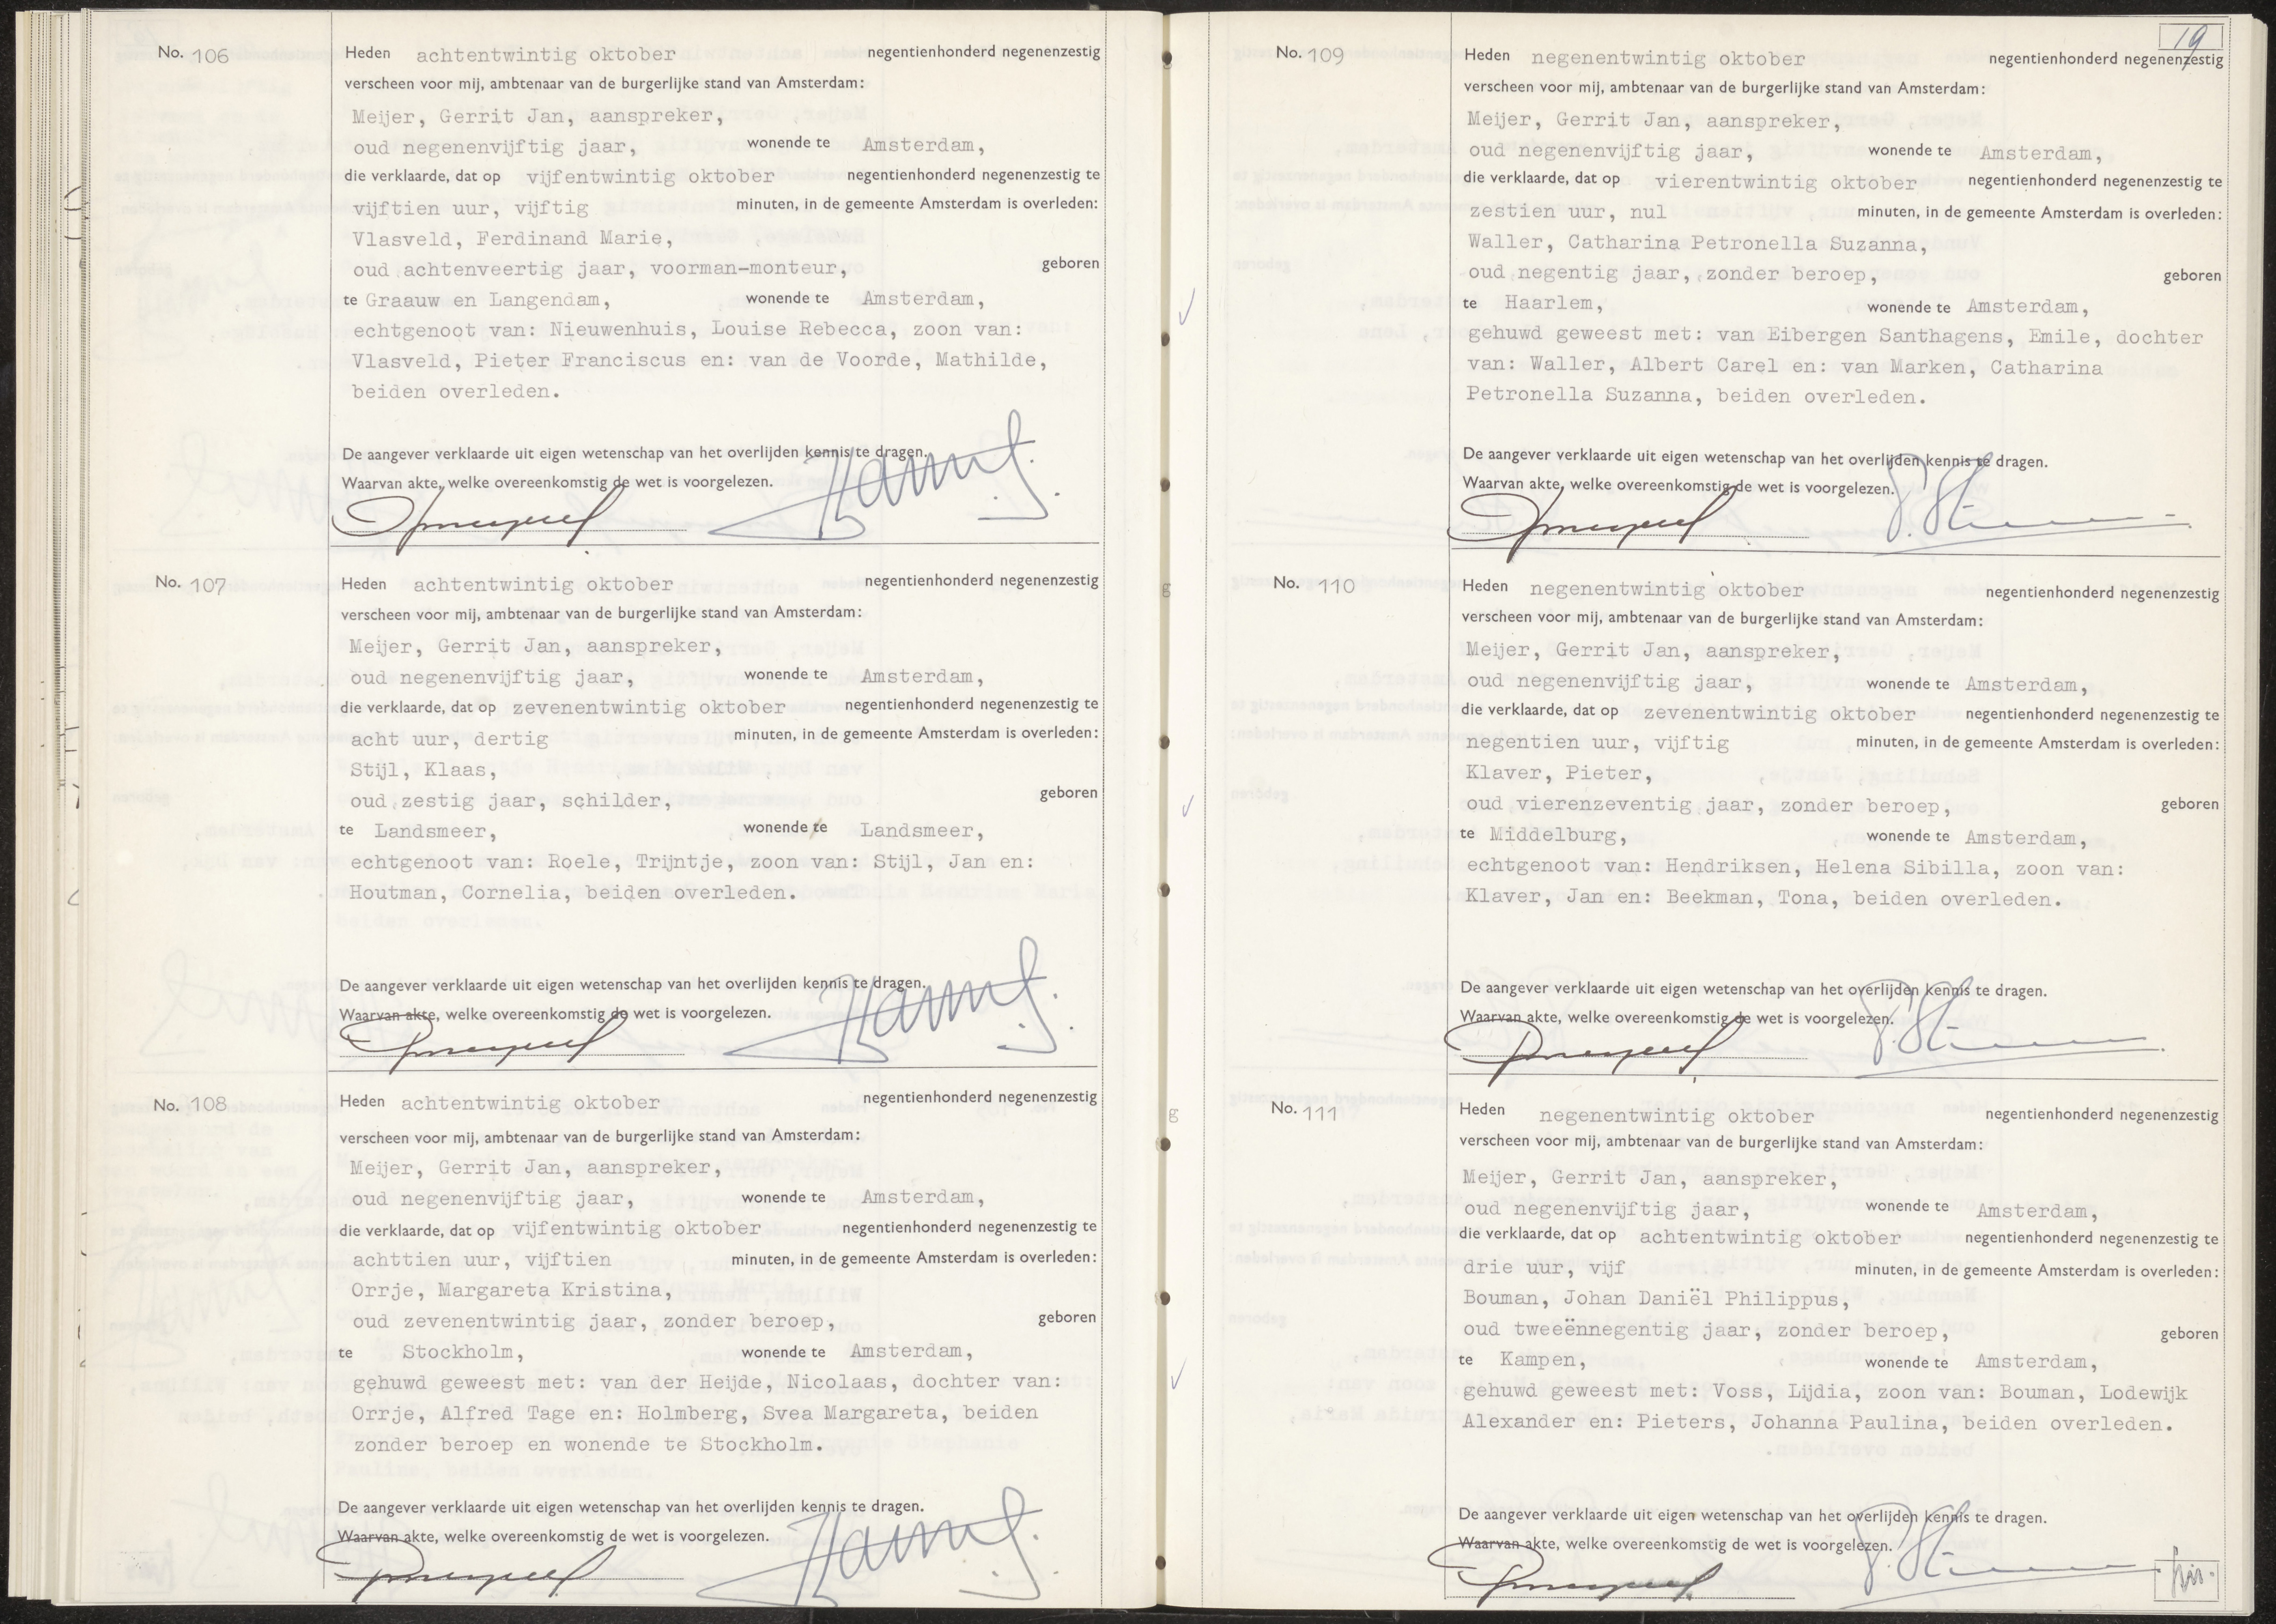 No. 106
Heden achtentwintig oktober negentienhonderd negenenzestig
verscheen voor mij, ambtenaar van de burgerlijke stand van Amsterdam:
Meijer, Gerrit Jan, aanspreker,
oud negenenvijftig jaar, wonende te Amsterdam,
die verklaarde, dat op vijfentwintig oktober negentienhonderd negenenzestig te
vijftien uur, vijftig minuten, in de gemeente Amsterdam is overleden:
Vlasveld, Ferdinand Marie,
oud achtenveertig jaar, voorman-monteur, geboren
te Graauw en Langendam, wonende te Amsterdam,
echtgenoot van: Nieuwenhuis, Louise Rebecca, zoon van:
Vlasveld, Pieter Franciscus en: van de Voorde, Mathilde,
beiden overleden.
De aangever verklaarde uit eigen wetenschap van het overlijden kennis te dragen.
Waarvan akte, welke overeenkomstig de wet is voorgelezen.
No. 107
Heden achtentwintig oktober negentienhonderd negenenzestig
verscheen voor mij, ambtenaar van de burgerlijke stand van Amsterdam:
Meijer, Gerrit Jan, aanspreker,
oud negenenvijftig jaar, wonende te Amsterdam,
die verklaarde, dat op zevenentwintig oktober negentienhonderd negenenzestig te
acht uur, dertig minuten, in de gemeente Amsterdam is overleden:
Stijl, Klaas,
oud zestig jaar, schilder, geboren
te Landsmeer, wonende te Landsmeer,
echtgenoot van: Roele, Trijntje, zoon van: Stijl, Jan en:
Houtman, Cornelia, beiden overleden.
De aangever verklaarde uit eigen wetenschap van het overlijden kennis te dragen.
Waarvan akte, welke overeenkomstig de wet is voorgelezen.
No. 108
Heden achtentwintig oktober negentienhonderd negenenzestig
verscheen voor mij, ambtenaar van de burgerlijke stand van Amsterdam:
Meijer, Gerrit Jan, aanspreker,
oud negenenvijftig jaar, wonende te Amsterdam,
die verklaarde, dat op vijfentwintig oktober negentienhonderd negenenzestig te
achttien uur, vijftien minuten, in de gemeente Amsterdam is overleden:
Orrje, Margareta Kristina,
oud zevenentwintig jaar, zonder beroep, geboren
te Stockholm, wonende te Amsterdam,
gehuwd geweest met: van der Heijde, Nicolaas, dochter van:
Orrje, Alfred Tage en: Holmberg, Svea Margareta, beiden
zonder beroep en wonende te Stockholm.
De aangever verklaarde uit eigen wetenschap van het overlijden kennis te dragen.
Waarvan akte, welke overeenkomstig de wet is voorgelezen.
19
No. 109
Heden negenentwintig oktober negentienhonderd negenenzestig
verscheen voor mij, ambtenaar van de burgerlijke stand van Amsterdam:
Meijer, Gerrit Jan, aanspreker,
oud negenenvijftig jaar, wonende te Amsterdam,
die verklaarde, dat op vierentwintig oktober negentienhonderd negenenzestig te
zestien uur, nul minuten, in de gemeente Amsterdam is overleden:
Waller, Catharina Petronella Suzanna,
oud negentig jaar, zonder beroep, geboren
te Haarlem, wonende te Amsterdam,
gehuwd geweest met: van Eibergen Santhagens, Emile, dochter
van: Waller, Albert Carel en: van Marken, Catharina
Petronella Suzanna, beiden overleden.
De aangever verklaarde uit eigen wetenschap van het overlijden kennis te dragen.
Waarvan akte, welke overeenkomstig de wet is voorgelezen.
No. 110
Heden negenentwintig oktober negentienhonderd negenenzestig
verscheen voor mij, ambtenaar van de burgerlijke stand van Amsterdam:
Meijer, Gerrit Jan, aanspreker,
oud negenenvijftig jaar, wonende te Amsterdam,
die verklaarde, dat op zevenentwintig oktober negentienhonderd negenenzestig te
negentien uur, vijftig minuten, in de gemeente Amsterdam is overleden:
Klaver, Pieter,
oud vierenzeventig jaar, zonder beroep, geboren
te Middelburg, wonende te Amsterdam,
echtgenoot van: Hendriksen, Helena Sibilla, zoon van:
Klaver, Jan en: Beekman, Tona, beiden overleden.
De aangever verklaarde uit eigen wetenschap van het overlijden kennis te dragen.
Waarvan akte, welke overeenkomstig de wet is voorgelezen.
No. 111
Heden negenentwintig oktober negentienhonderd negenenzestig
verscheen voor mij, ambtenaar van de burgerlijke stand van Amsterdam:
Meijer, Gerrit Jan, aanspreker,
oud negenenvijftig jaar, wonende te Amsterdam,
die verklaarde, dat op achtentwintig oktober negentienhonderd negenenzestig te
drie uur, vijf minuten, in de gemeente Amsterdam is overleden:
Bouman, Johan Daniël Philippus,
oud tweeënnegentig jaar, zonder beroep, geboren
te Kampen, wonende te Amsterdam,
gehuwd geweest met: Voss, Lijdia, zoon van: Bouman, Lodewijk
Alexander en: Pieters, Johanna Paulina, beiden overleden.
De aangever verklaarde uit eigen wetenschap van het overlijden kennis te dragen.
Waarvan akte, welke overeenkomstig de wet is voorgelezen.